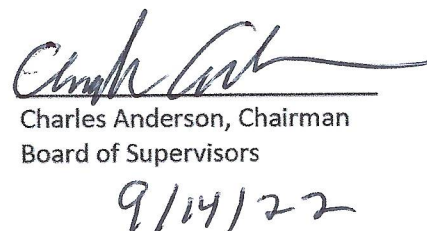 Charles Anderson, Chairman
Board of Supervisors
9/14/22